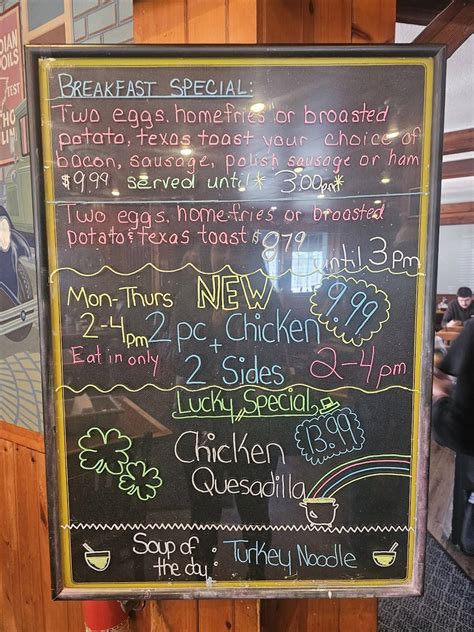 BREAKFAST SPECIAL:
Two eggs, homefries or broasted
potato, texas toast your choice of
bacon, sausage, polish sausage or ham
$9.99 served until * 3:00pm*
Two eggs, home-fries or broasted
potato & texas toast $8.79
until 3pm
Mon-Thurs NEW 9.99
2-4pm 2 pc Chicken
Eat in only + 2 Sides 2-4pm
Lucky Special
13.99
Chicken
Quesadilla
Soup of the day: Turkey Noodle